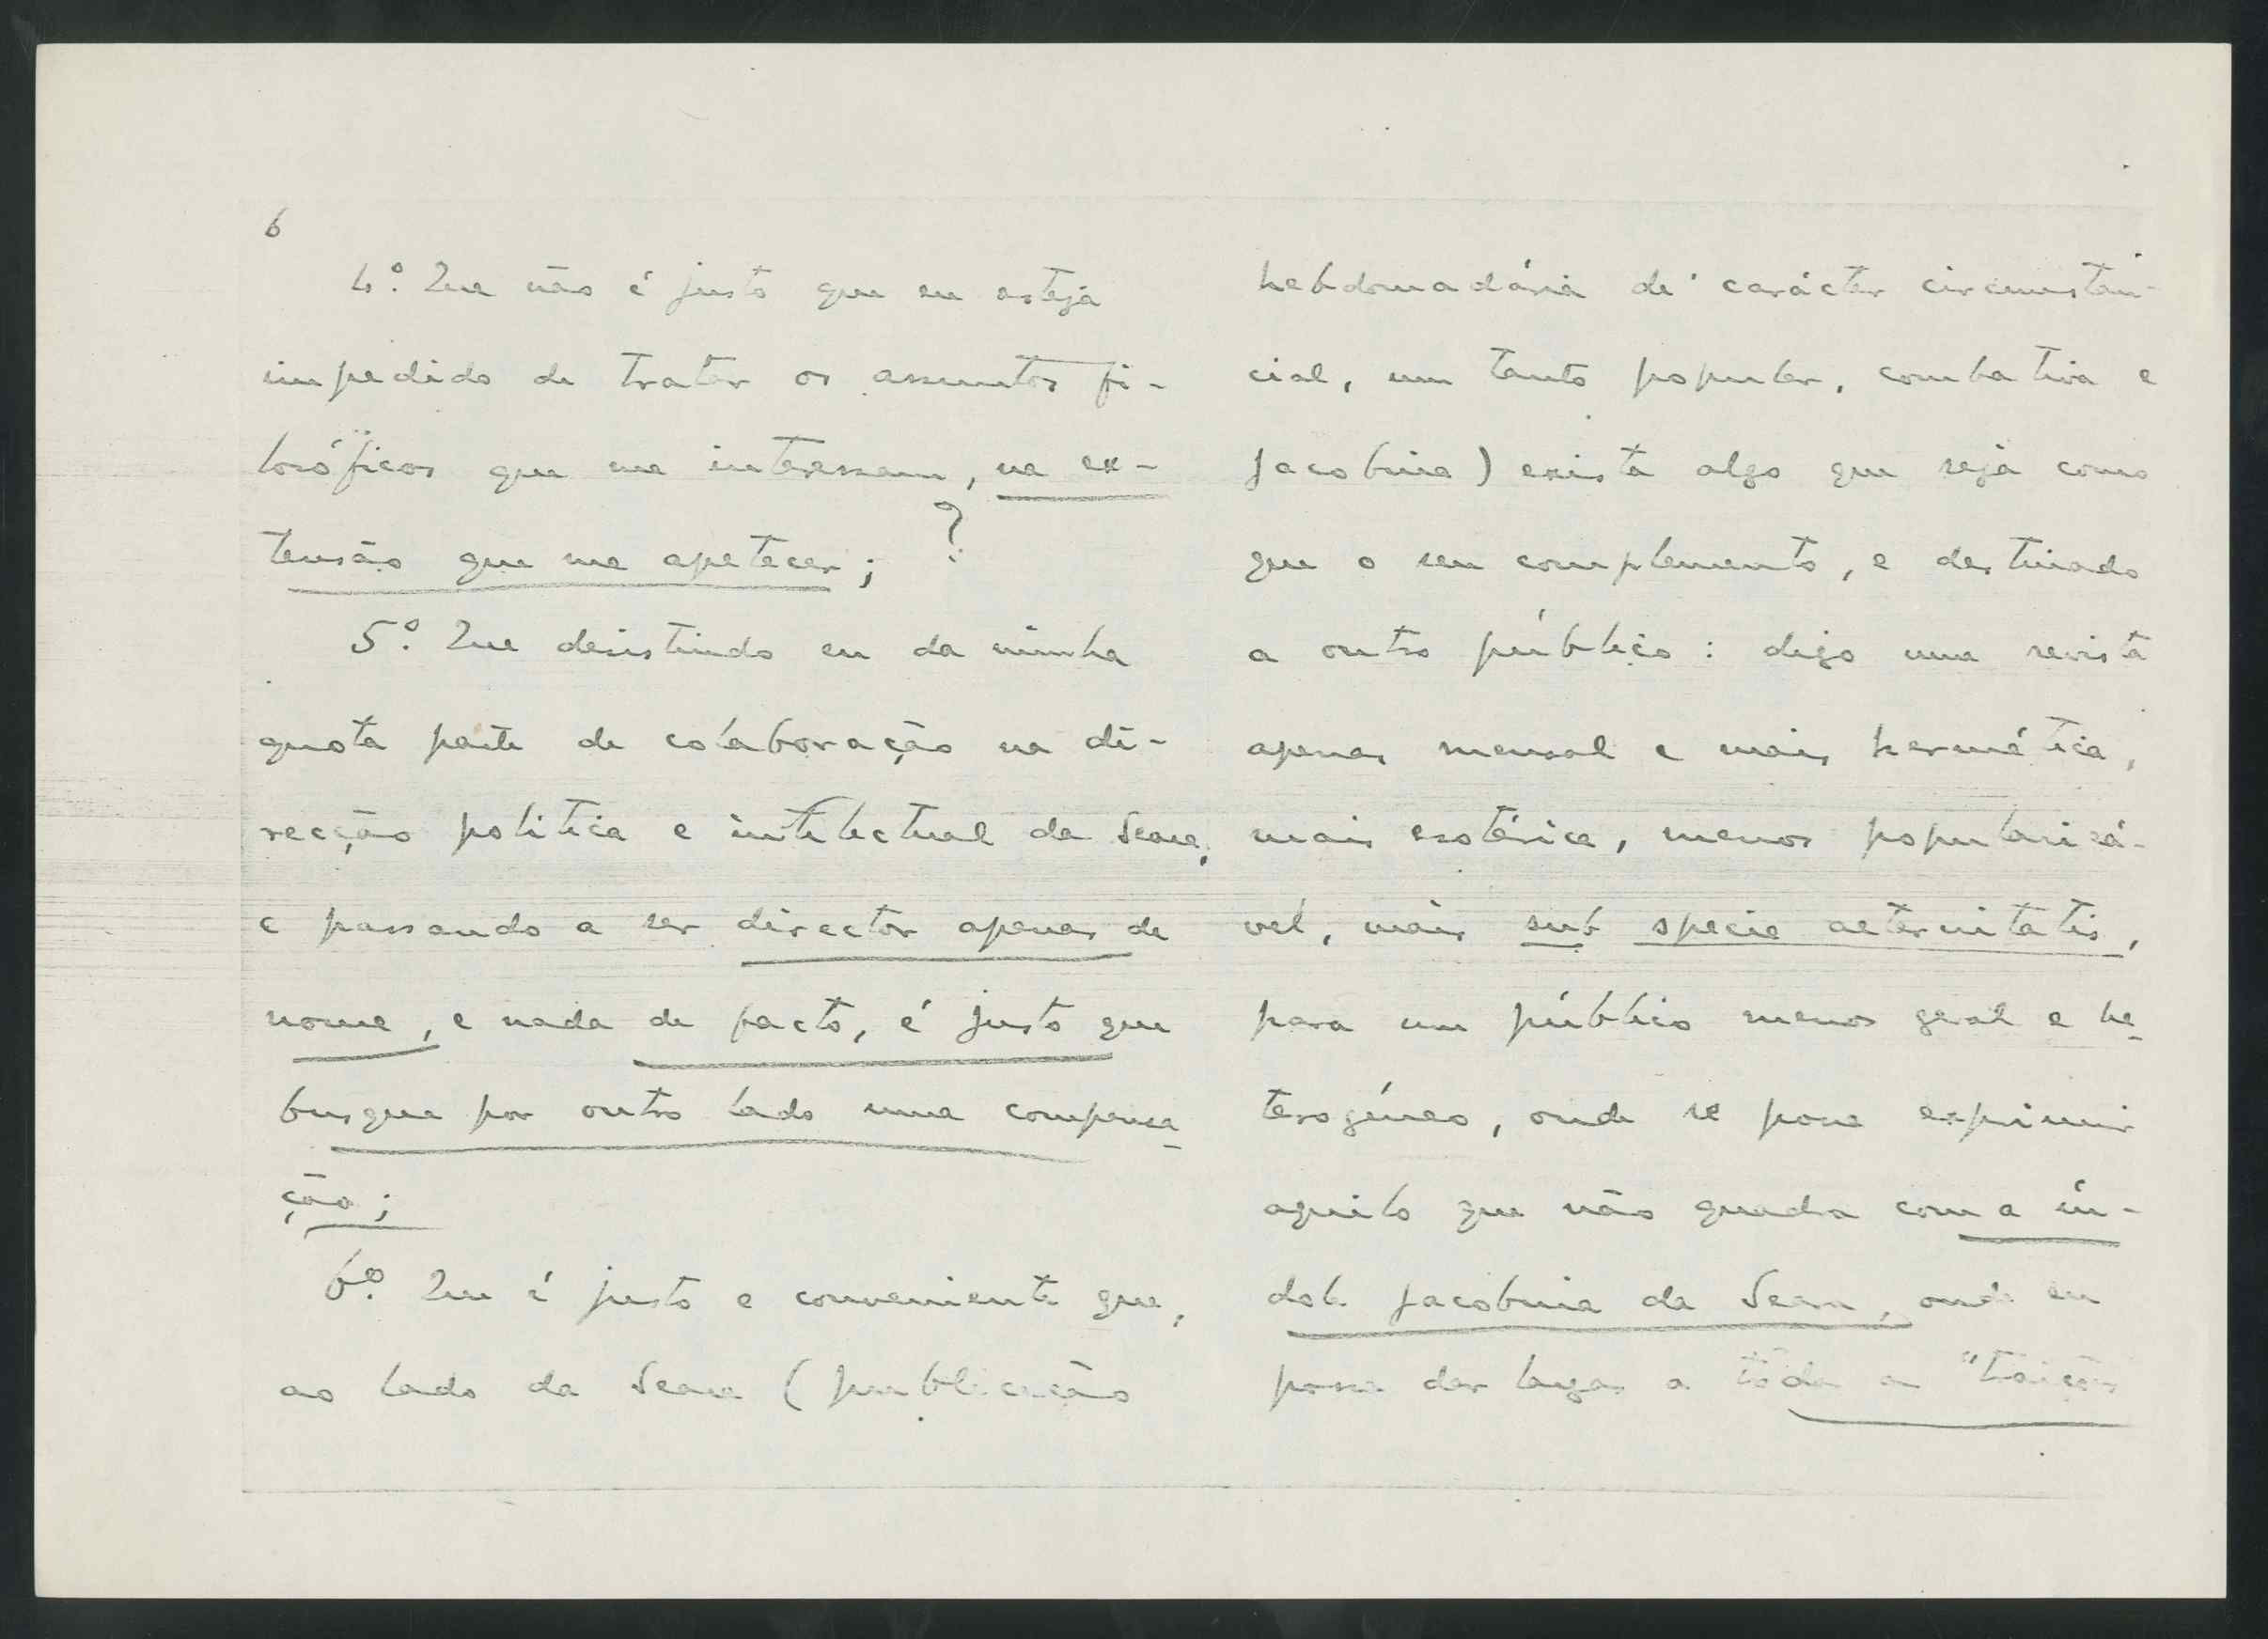 6
4.º Que não é justo que eu esteja
impedido de tratar os assuntos fi-
losóficos que me interessam, na ex-
tensão que me apetecer; ?
5.º Que desistindo eu da minha
quota parte de colaboração na di-
recção politica e intelectual da Seara,
e passando a ser director apenas de
nome, e nada de facto, é justo que
busque por outro lado uma compensa-
ção;
6.º Que é justo e conveniente que,
ao lado da Seara (publicação
hebdomadária de carácter circumstân-
cial, um tanto popular, combativa e
jacobina) exista algo que seja como
que o seu complemento, e destinado
a outro público: digo uma revista
apenas mensal e mais hermética,
mais esotérica, menos popularizá-
vel, mais sub specie aeternitatis,
para um público menos geral e he-
terogéneo, onde se possa exprimir
aquilo que não quadra com a ín-
dole jacobina da Seara, onde eu
possa dar largas a tôdas as "traições